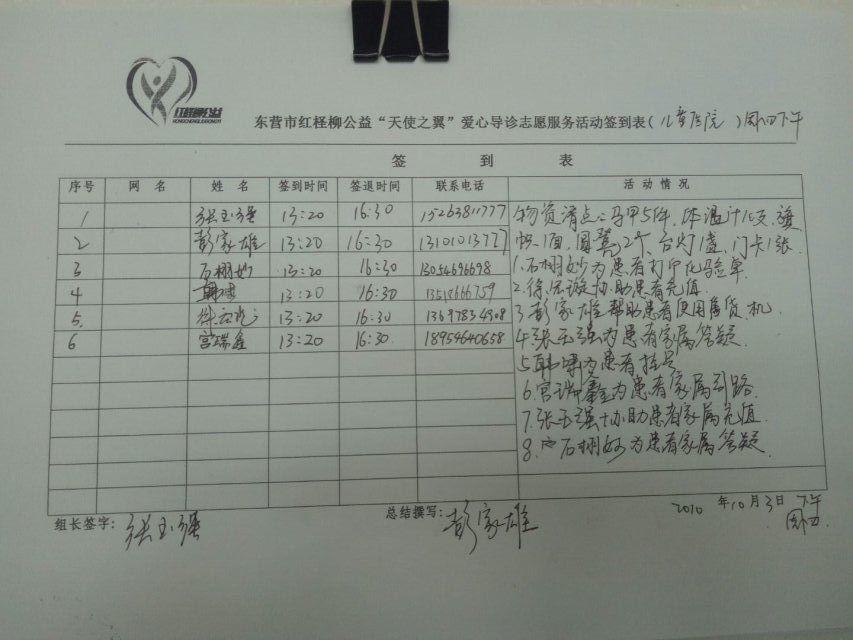 红柽柳公益
HONGCHENGLIUGONGYI
东营市红柽柳公益“天使之翼”爱心导诊志愿服务活动签到表(儿童医院)周四下午
签到表
序号 网名 姓名 签到时间 签退时间 联系电话 活动情况
1 张玉强 13:20 16:30 15263811777 物资清点：马甲5件、体温计16支、旗
2 彭家雄 13:20 16:30 13101013727 帜1面、圆凳2个、台灯1盏、门卡1张
3 石栩妙 13:20 16:30 13054696698 1.石栩妙为患者打印化验单
4 13:20 16:30 13518666759 2.徐 协助患者充值
5. 13:20 16:30 13697834308 3.彭家雄帮助患者使用售货机
6 宫瑞鑫 13:20 16:30 18954640658 4.张玉强为患者家属答疑
5.韩 为患者挂号
6.宫瑞鑫为患者家属引路
7.张玉强协助患者家属充值
8.石栩妙为患者家属答疑
组长签字：张玉强 总结撰写：彭家雄 2010年10月3日 下午
周四.